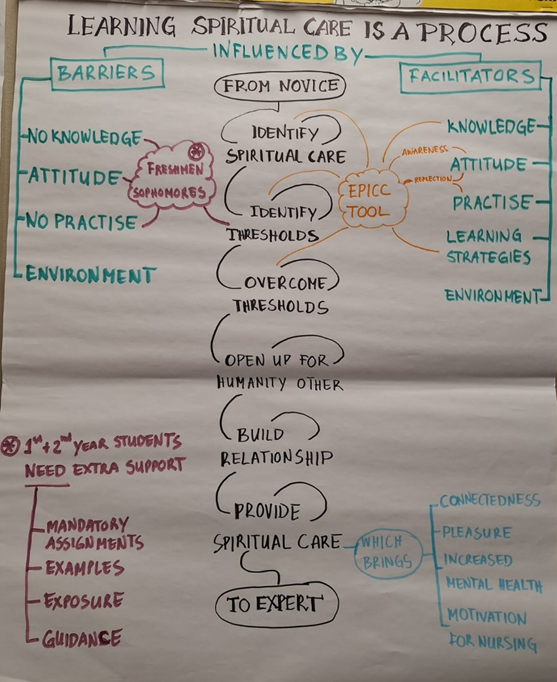 LEARNING SPIRITUAL CARE IS A PROCESS
INFLUENCED BY
BARRIERS
NO KNOWLEDGE
ATTITUDE
NO PRACTISE
ENVIRONMENT
FRESHMEN
SOPHOMORES
FROM NOVICE
IDENTIFY
SPIRITUAL CARE
IDENTIFY
THRESHOLDS
OVERCOME
THRESHOLDS
OPEN UP FOR
HUMANITY OTHER
BUILD
RELATIONSHIP
PROVIDE
SPIRITUAL CARE
TO EXPERT
EPICC
TOOL
AWARENESS
REFLECTION
FACILITATORS
KNOWLEDGE
ATTITUDE
PRACTISE
LEARNING
STRATEGIES
ENVIRONMENT
1st + 2nd YEAR STUDENTS
NEED EXTRA SUPPORT
MANDATORY
ASSIGNMENTS
EXAMPLES
EXPOSURE
GUIDANCE
WHICH
BRINGS
CONNECTEDNESS
PLEASURE
INCREASED
MENTAL HEALTH
MOTIVATION
FOR NURSING